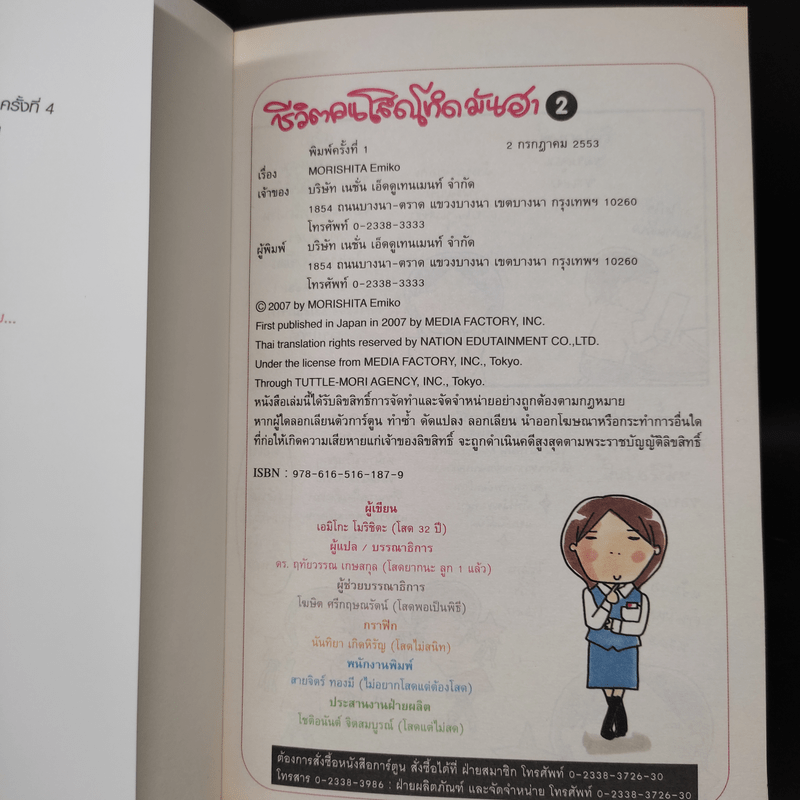 ครั้งที่ 4
ชีวิตคนโสดโหดมันฮา 2
พิมพ์ครั้งที่ 1 2 กรกฎาคม 2553
เรื่อง MORISHITA Emiko
เจ้าของ บริษัท เนชั่น เอ็ดดูเทนเมนท์ จำกัด
1854 ถนนบางนา-ตราด แขวงบางนา เขตบางนา กรุงเทพฯ 10260
โทรศัพท์ 0-2338-3333
ผู้พิมพ์ บริษัท เนชั่น เอ็ดดูเทนเมนท์ จำกัด
1854 ถนนบางนา-ตราด แขวงบางนา เขตบางนา กรุงเทพฯ 10260
โทรศัพท์ 0-2338-3333
© 2007 by MORISHITA Emiko
First published in Japan in 2007 by MEDIA FACTORY, INC.
Thai translation rights reserved by NATION EDUTAINMENT CO.,LTD.
Under the license from MEDIA FACTORY, INC., Tokyo.
Through TUTTLE-MORI AGENCY, INC., Tokyo.
หนังสือเล่มนี้ได้รับลิขสิทธิ์การจัดทำและจัดจำหน่ายอย่างถูกต้องตามกฎหมาย
หากผู้ใดลอกเลียนตัวการ์ตูน ทำซ้ำ ดัดแปลง ลอกเลียน นำออกโฆษณาหรือกระทำการอื่นใด
ที่ก่อให้เกิดความเสียหายแก่เจ้าของลิขสิทธิ์ จะถูกดำเนินคดีสูงสุดตามพระราชบัญญัติลิขสิทธิ์
ISBN : 978-616-516-187-9
ผู้เขียน
เอมิโกะ โมริชิตะ (โสด 32 ปี)
ผู้แปล / บรรณาธิการ
ดร. ฤทัยวรรณ เกษสกุล (โสดยากนะ ลูก 1 แล้ว)
ผู้ช่วยบรรณาธิการ
โฆษิต ศรีกฤษณรัตน์ (โสดพอเป็นพิธี)
กราฟิก
นันทิยา เกิดหิรัญ (โสดไม่สนิท)
พนักงานพิมพ์
สายจิตร์ ทองมี (ไม่อยากโสดแต่ต้องโสด)
ประสานงานฝ่ายผลิต
โชติอนันต์ จิตสมบูรณ์ (โสดแต่ไม่สด)
ต้องการสั่งซื้อหนังสือการ์ตูน สั่งซื้อได้ที่ ฝ่ายสมาชิก โทรศัพท์ 0-2338-3726-30
โทรสาร 0-2338-3986 : ฝ่ายผลิตภัณฑ์ และจัดจำหน่าย โทรศัพท์ 0-2338-3726-30